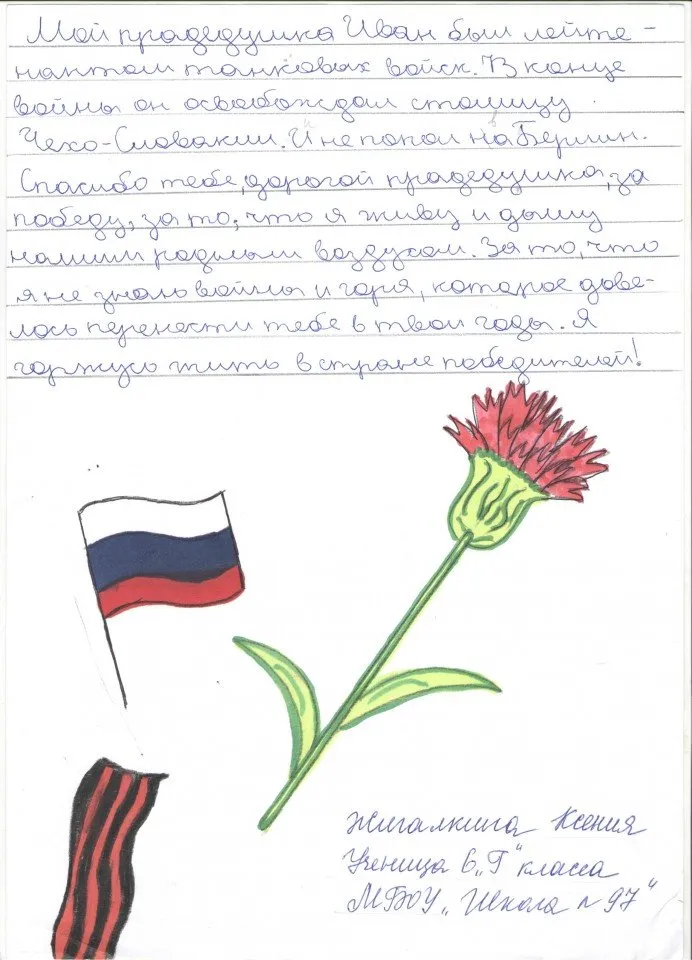 Мой прадедушка Иван был лейте-
нантом танковых войск. В конце
войны он освобождал столицу
Чехо-Словакии. И не попал на Берлин.
Спасибо тебе, дорогой прадедушка, за
победу, за то, что я живу и дышу
нашим родным воздухом. За то, что
я не знаю войны и горя, которое дове-
лось перенести тебе в твои годы. Я
горжусь жить в стране победителей!
Жигалкина Ксения
Ученица 6 „Г" класса
МБОУ „Школа № 97"